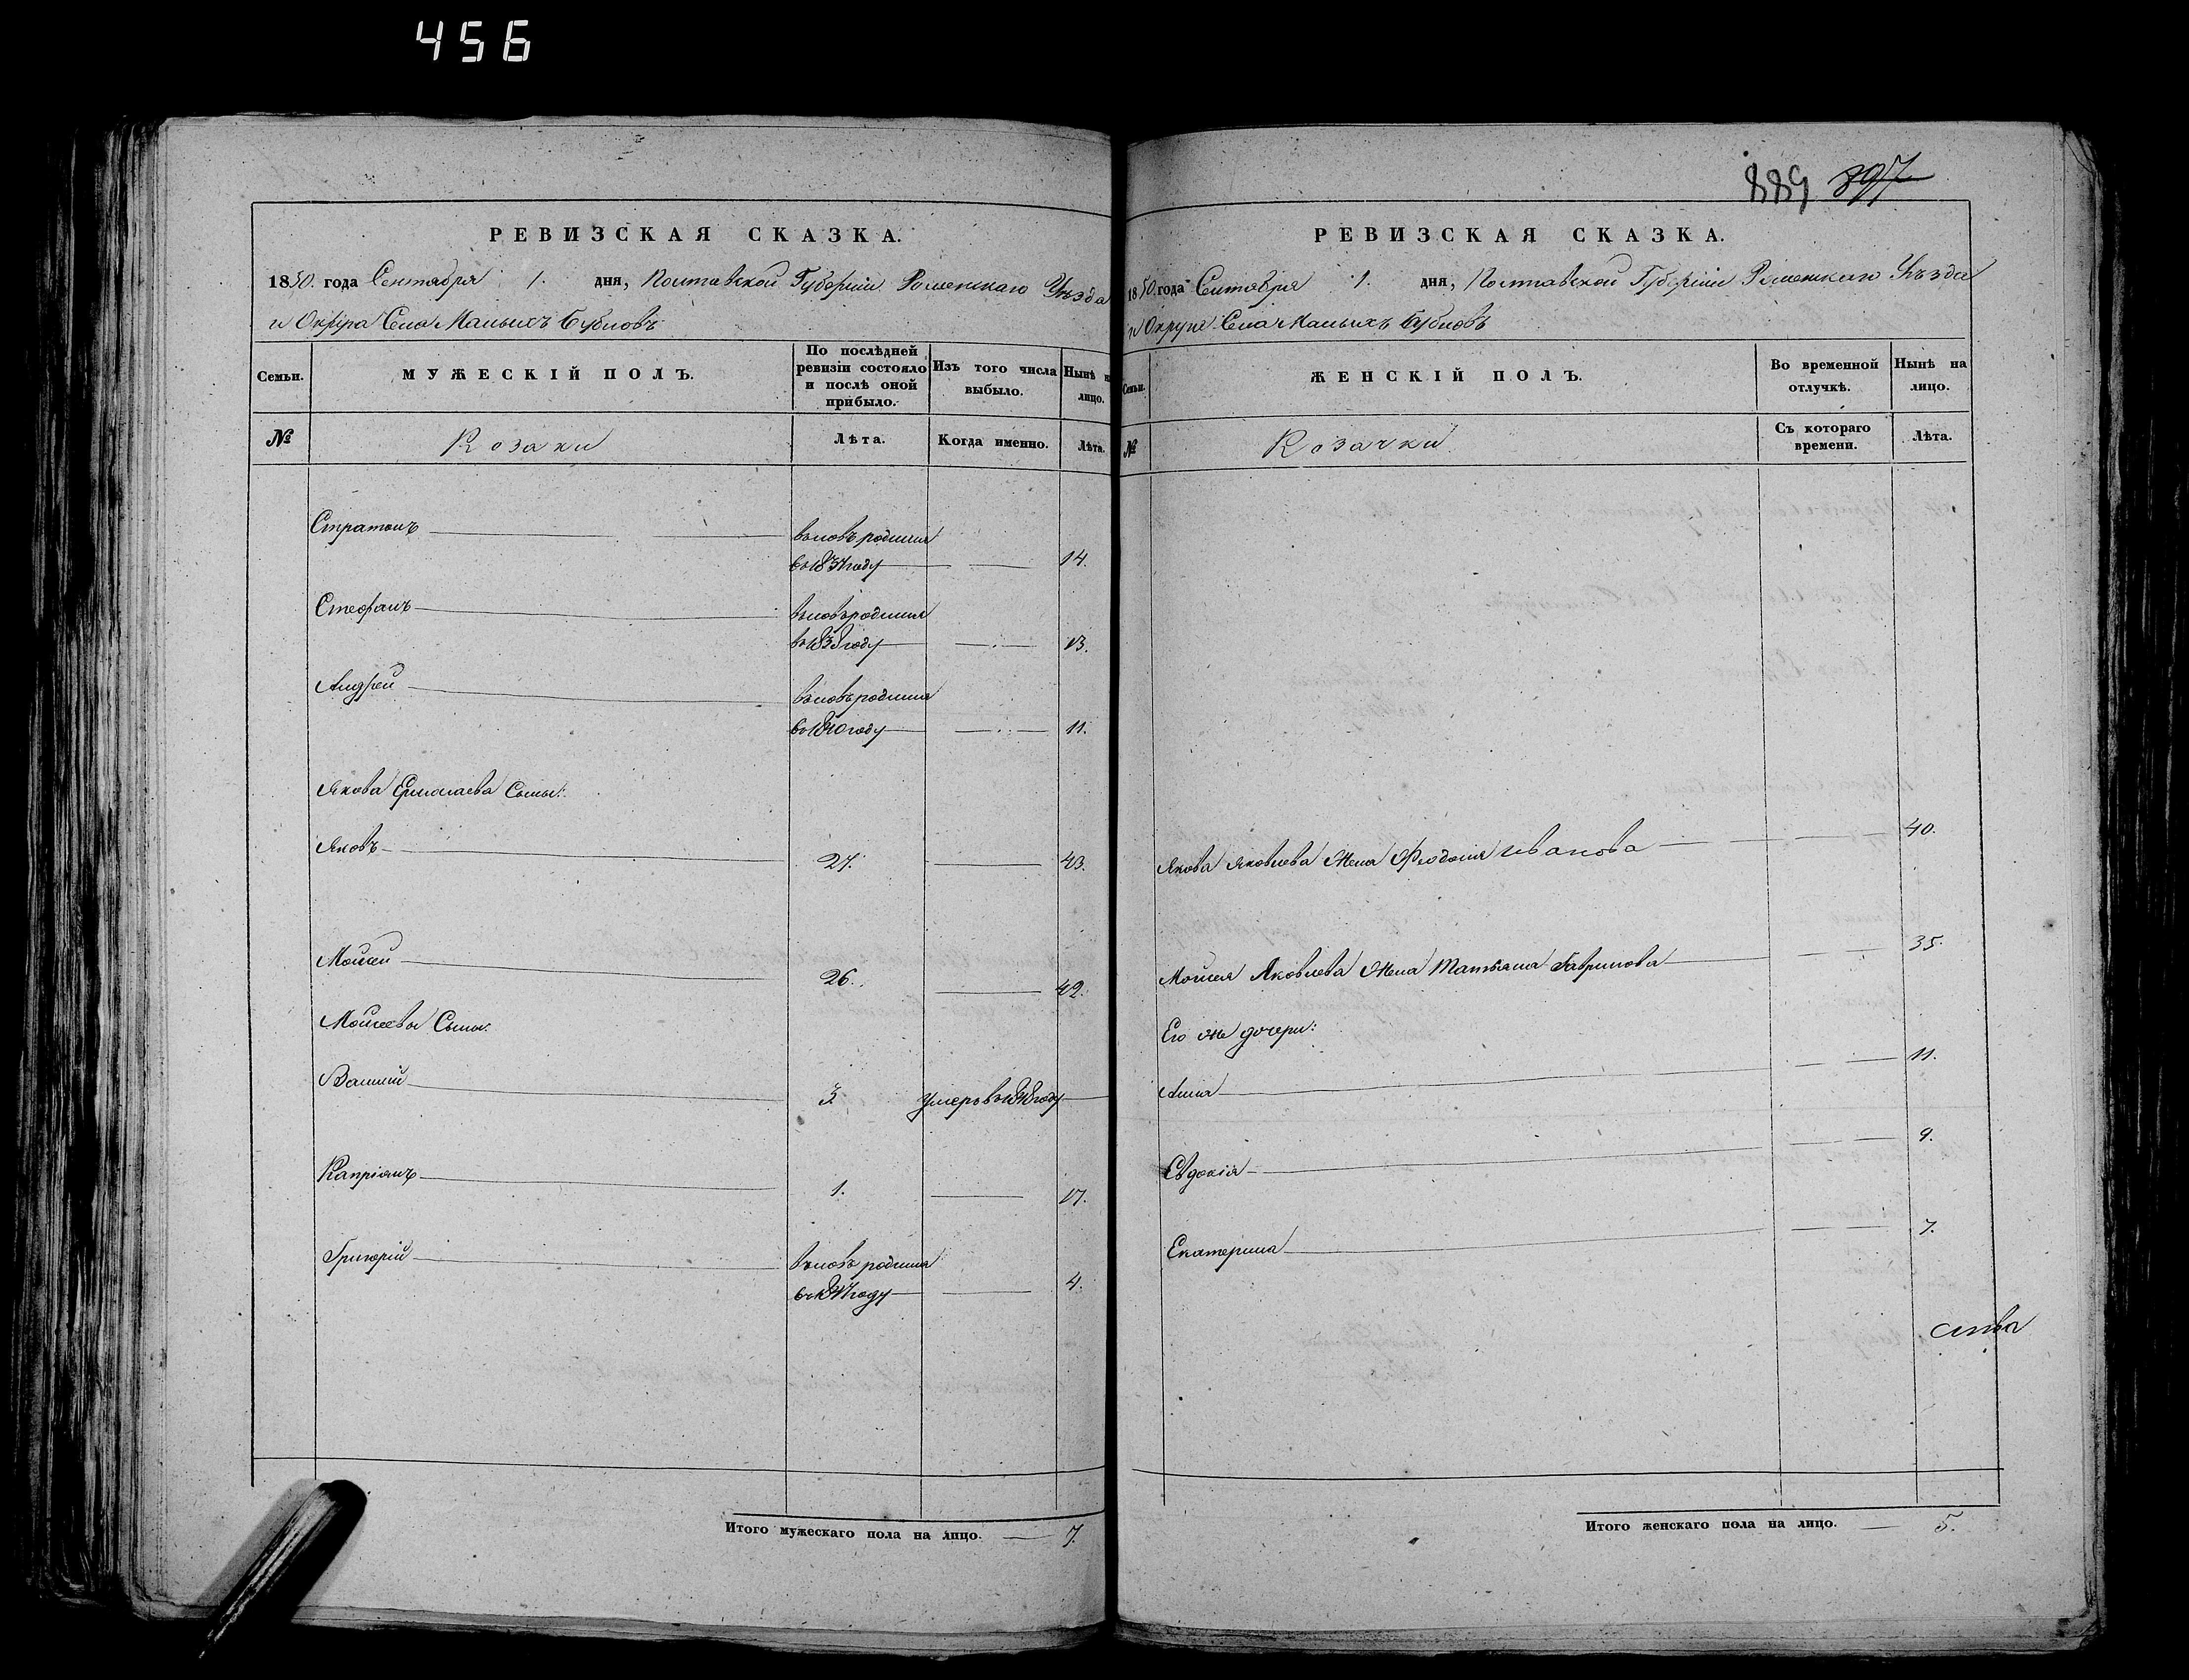 456
889 397
РЕВИЗСКАЯ СКАЗКА.
1850. года Сентября 1. дня, Полтавской Губерніи Роменскаго Уѣзда
и Округа Села Малыхъ Бубновъ
Семьи.
МУЖЕСКІЙ ПОЛЪ.
По послѣдней ревизіи состояло и послѣ оной прибыло.
Изъ того числа выбыло.
Нынѣ на лицо.
№
Козаки
Лѣта.
Когда именно.
Лѣта.
Стратонъ
вновь родился
въ 1837 году 14.
Стефанъ
вновь родился
въ 1838 году 13.
Андрей
вновь родился
въ 1840 году 11.
Якова Ермолаева Сыны:
Яковъ 27. 43.
Мойсей 26. 42.
Мойсеевы Сыны:
Василий 3. умеръ въ 1848 году
Капріянъ 1. 17.
Григорій
вновь родился
въ 1847 году 4.
Итого мужескаго пола на лицо. 7.
РЕВИЗСКАЯ СКАЗКА.
1850. года Сентября 1. дня, Полтавской Губерніи Роменскаго Уѣзда
и Округи Села Малыхъ Бубновъ
Семьи.
ЖЕНСКІЙ ПОЛЪ.
Во временной отлучкѣ.
Нынѣ на лицо.
№
Козачки
Съ котораго времени.
Лѣта.
Якова Яковлева Жена Феодосия Иванова 40.
Мойсея Яковлева Жена Татьяна Гаврилова 35.
Его же дочери:
Анна 11.
Евдокія 9.
Екатерина 7.
Итого женскаго пола на лицо. 5.